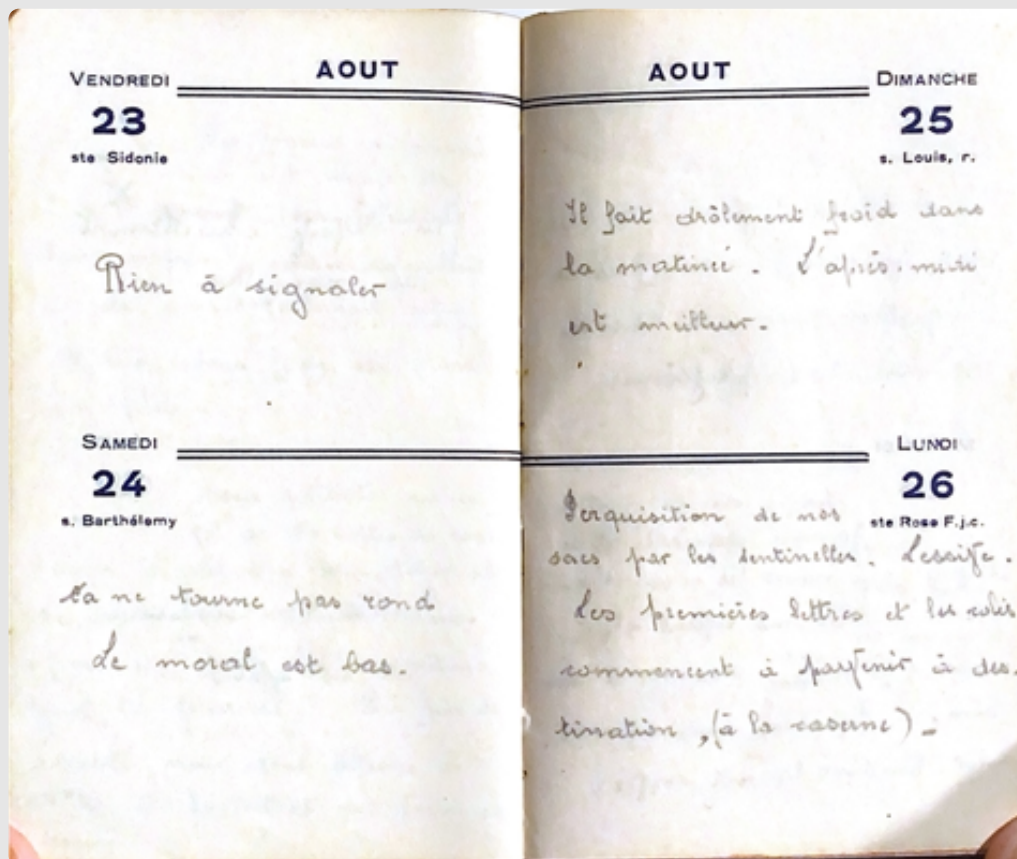 VENDREDI
AOUT
23
ste Sidonie
Rien à signaler
SAMEDI
24
s. Barthélemy
Ça ne tourne pas rond
Le moral est bas.
AOUT
DIMANCHE
25
s. Louis, r.
Il fait drôlement froid dans
la matinée. L'après-midi
est meilleur.
LUNDI
26
ste Rose F.j.c.
Perquisition de nos
sacs par les sentinelles.
Les premières lettres et les colis
commencent à parvenir à des-
tination, (à la caserne).